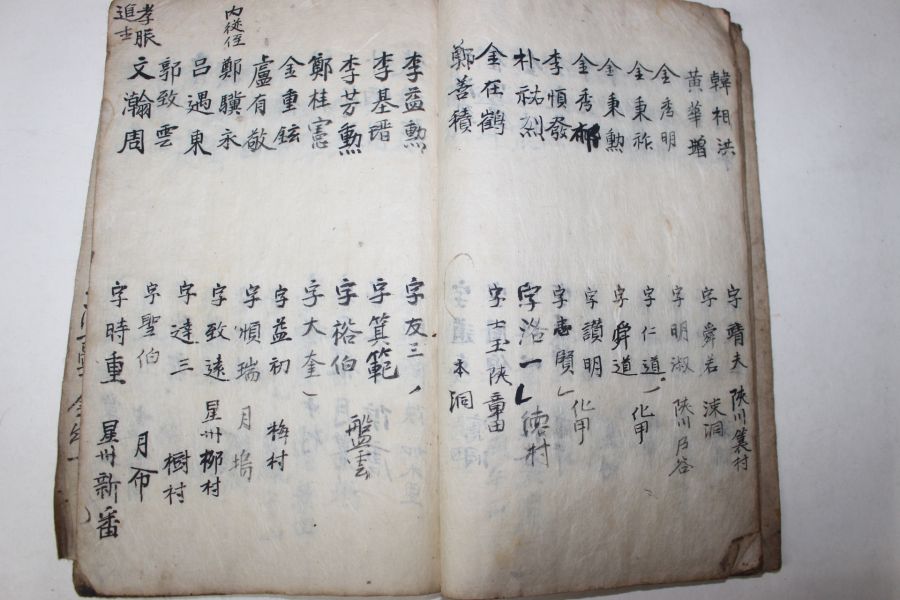 韓相洪 字晴夫 陜川篪村
黃華增 字舜若 涑洞
金秀明 字明淑 陜川乃谷
金秉祚 字仁道 化甲
金秉勲 字舜道
金秀郁 字讃明
李順發 字志賢 化甲
朴祐烈 字洛一 德村
金在鶴 字士玉 陜章田
鄭善積 本洞
李益勲 字友三
李基瑨 字箕範
李芳勲 字裕伯 盤雲
鄭桂憲 字大奎
金重鉉 字益初 梅村
盧有敬 字順瑞 月塢
內從侄
鄭驥永 字致遠 星州柳村
呂遇東 字達三 樹村
郭致雲 字聖伯 月布
孝服
進士
文瀚周 字時重 星州新番